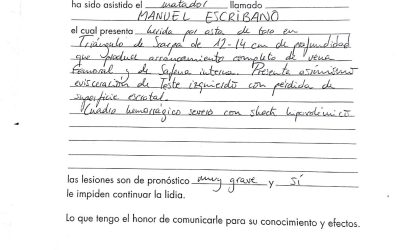 ha sido asistido el matador llamado
MANUEL ESCRIBANO
el cual presenta herida por asta de toro en
Triángulo de Scarpa de 12-14 cm de profundidad
que produce arrancamiento completo de vena
femoral y de Safena interna. Presenta asimismo
evisceración de teste izquierdo con pérdida de
superficie escrotal.
Cuadro hemorrágico severo con shock hipovolémico
las lesiones son de pronóstico muy grave y sí
le impiden continuar la lidia.
Lo que tengo el honor de comunicarle para su conocimiento y efectos.